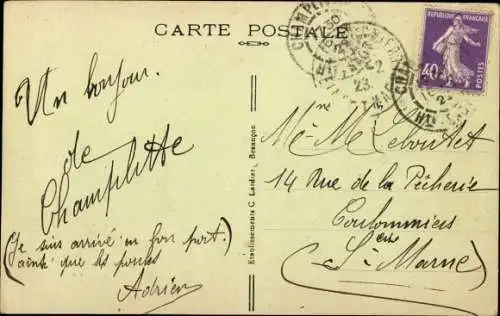 CARTE POSTALE
Un bonjour.
de
Champlitte
(Je suis arrivé en bon port.
ainsi que les poules)
Adrien
Etablissements C. Lardier, Besançon
REPUBLIQUE FRANÇAISE
40c
POSTES
CHAMPLITTE
23
Mme M Leboutet
14 Rue de la Pêcherie
Coulommiers
(Sne et Marne)